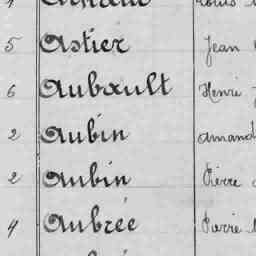 5 Astier Jean
6 Aubault Henri
2 Aubin Amand
2 Aubin Pierre
4 Aubrée Pierre